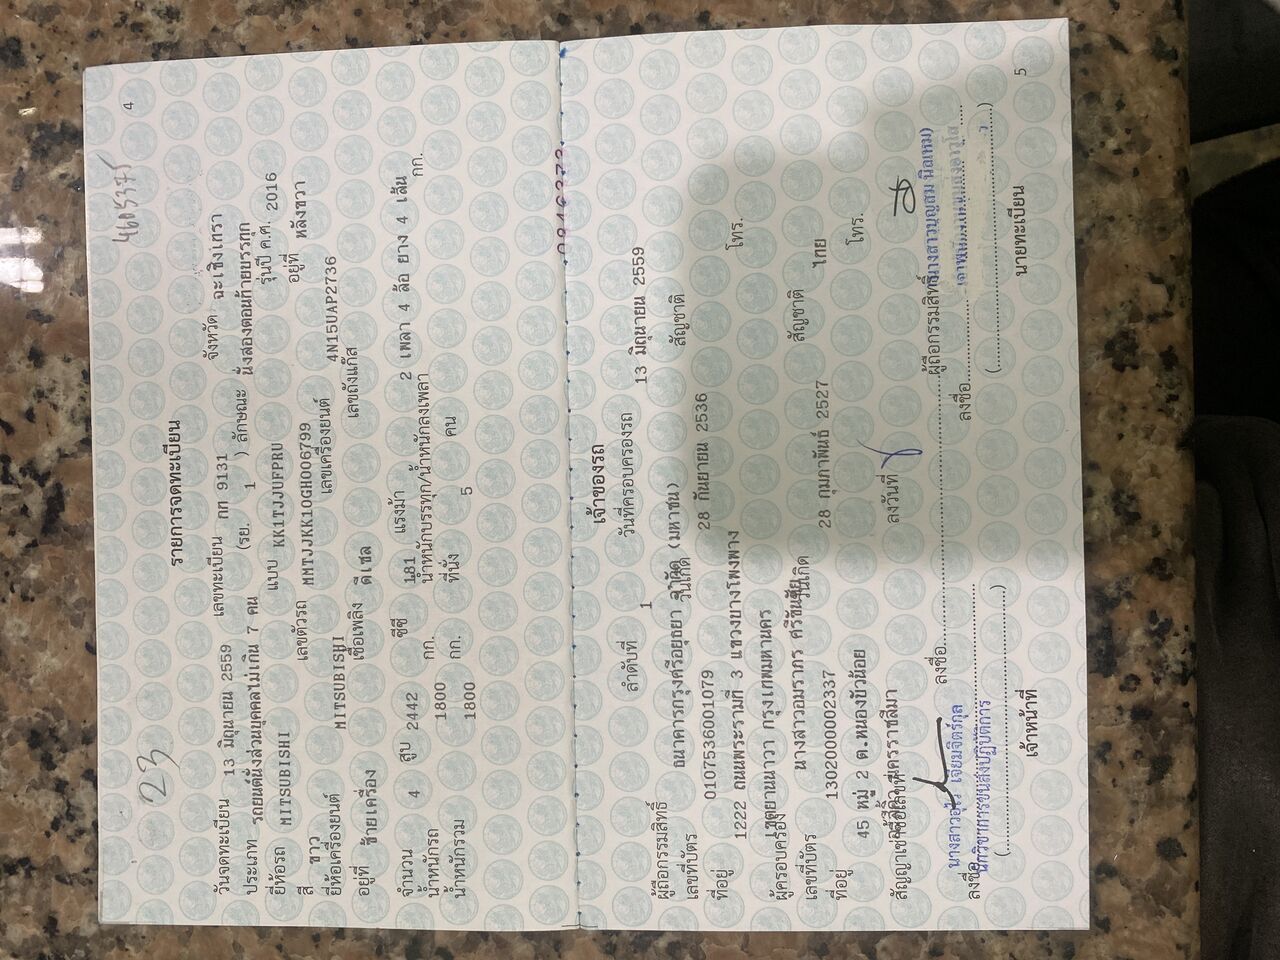 4
23
4605375
รายการจดทะเบียน
วันจดทะเบียน 13 มิถุนายน 2559 เลขทะเบียน กก 9131 จังหวัด ฉะเชิงเทรา
ประเภท รถยนต์นั่งส่วนบุคคลไม่เกิน 7 คน (รย. 1 ) ลักษณะ นั่งสองตอนท้ายบรรทุก
ยี่ห้อรถ MITSUBISHI แบบ KK1TJJUFPRU รุ่นปี ค.ศ. 2016
สี ขาว เลขตัวรถ MMTJJKK10GH006799 อยู่ที่ หลังขวา
ยี่ห้อเครื่องยนต์ MITSUBISHI เลขเครื่องยนต์ 4N15UAP2736
อยู่ที่ ซ้ายเครื่อง เชื้อเพลิง ดีเซล เลขถังแก๊ส
จำนวน 4 สูบ 2442 ซีซี 181 แรงม้า 2 เพลา 4 ล้อ ยาง 4 เส้น
น้ำหนักรถ 1800 กก. น้ำหนักบรรทุก/น้ำหนักลงเพลา กก.
น้ำหนักรวม 1800 กก. ที่นั่ง 5 คน
เจ้าของรถ
ลำดับที่ 1 วันที่ครอบครองรถ 13 มิถุนายน 2559
ผู้ถือกรรมสิทธิ์ ธนาคารกรุงศรีอยุธยา จำกัด (มหาชน)
เลขที่บัตร 0107536001079 วันเกิด 28 กันยายน 2536 สัญชาติ
ที่อยู่ 1222 ถนนพระรามที่ 3 แขวงบางโพงพาง
เขตยานนาวา กรุงเทพมหานคร โทร.
ผู้ครอบครอง นางสาวอมราภร ศรีขันชัย
เลขที่บัตร 1302000002337 วันเกิด 28 กุมภาพันธ์ 2527 สัญชาติ ไทย
ที่อยู่ 45 หมู่ 2 ต.หนองบัวน้อย
นครราชสีมา โทร.
สัญญาเช่าซื้อเลขที่ ลงวันที่
ลงชื่อ ผู้ถือกรรมสิทธิ์
นางสาวบุญสม
นางสาวอุไร เจียมจิตร์กุล
นักวิชาการขนส่งปฏิบัติการ
ลงชื่อ ลงชื่อ
( ) ( )
เจ้าหน้าที่ นายทะเบียน
5